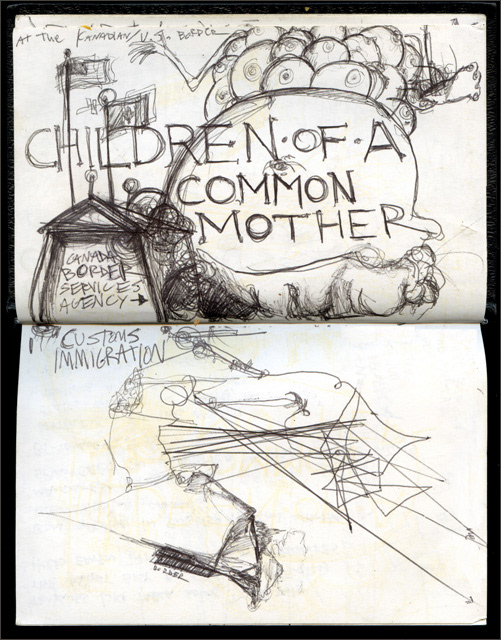 AT THE KANADIAN/U.S. BORDER
CHILDREN·OF·A
COMMON
MOTHER
CANADA
BORDER
SERVICES
AGENCY
CUSTOMS
IMMIGRATION